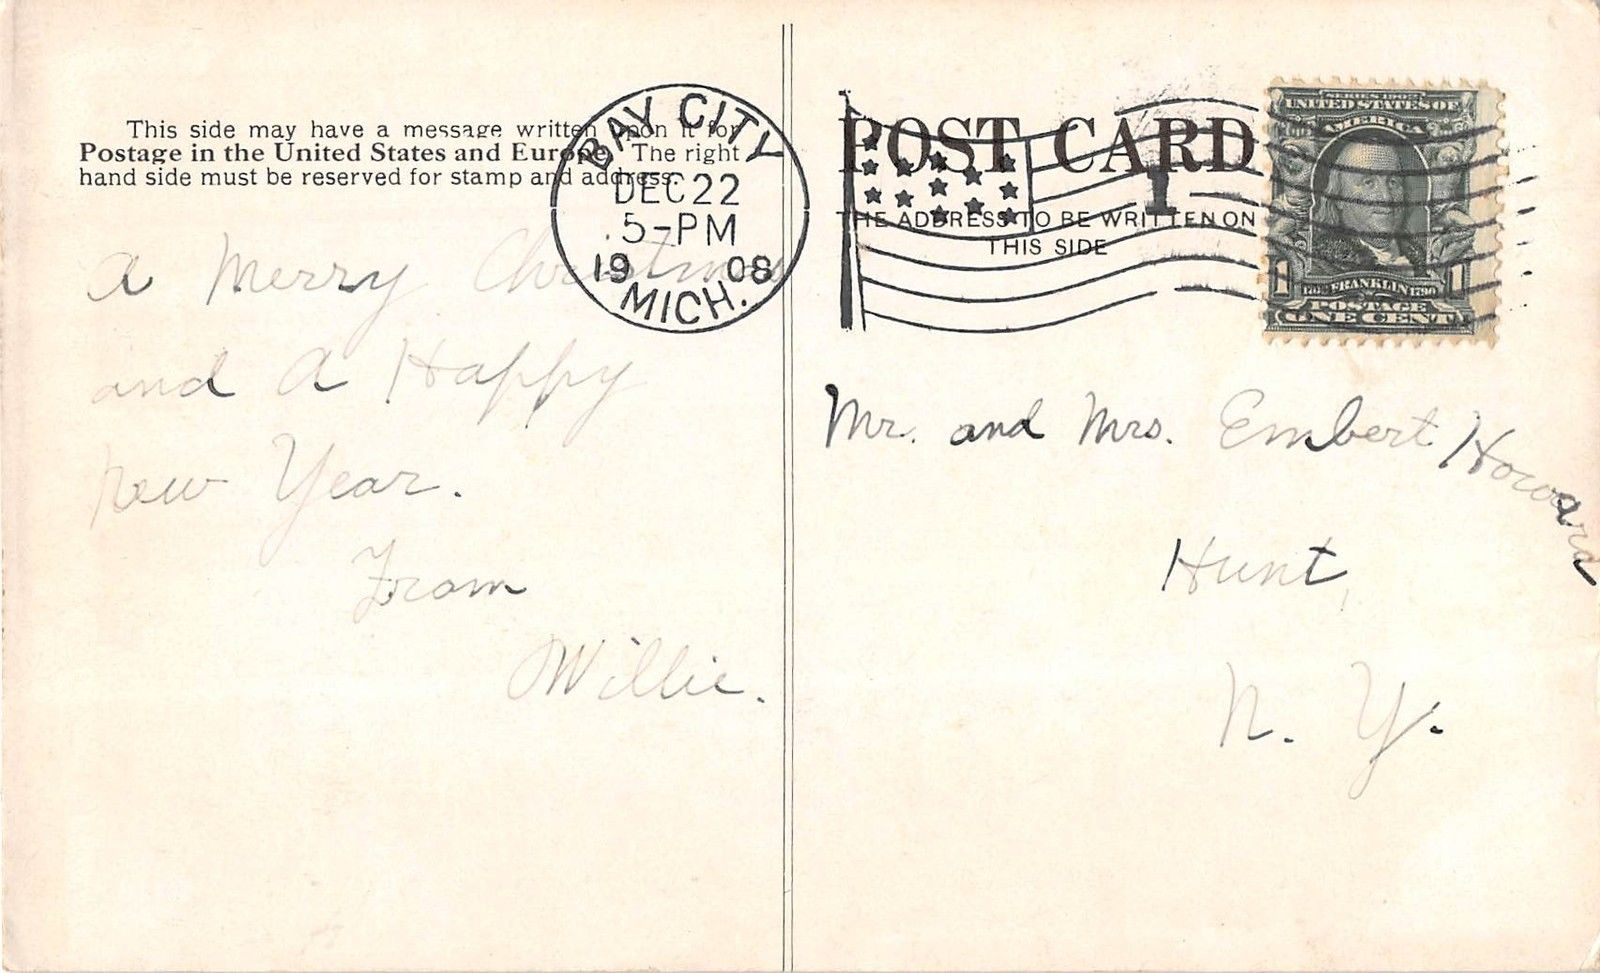 This side may have a message written upon it for
Postage in the United States and Europe. The right
hand side must be reserved for stamp and address.
BAY CITY
DEC 22
5-PM
1908
MICH.
A Merry Christmas
and A Happy
New Year.
From
Willie.
POST CARD
THE ADDRESS TO BE WRITTEN ON
THIS SIDE
1
SERIES 1902
UNITED STATES OF
AMERICA
FRANKLIN 1790
1 1
POSTAGE
ONE CENT
Mr. and Mrs. Embert Howard
Hunt,
N. Y.